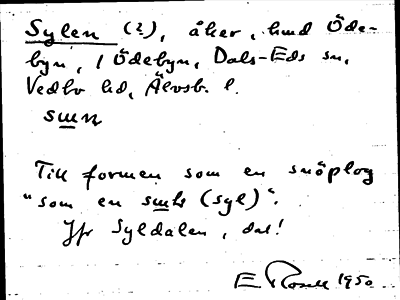 Sylen (?), åker, hmd Öde-
byn, 1 Ödebyn, Dals-Eds sn,
Vedbo hd, Älvsb. l.
Till formen som en snöplog
"som en (syl)".
Jfr Syldalen, dal!
E Rosell 1950